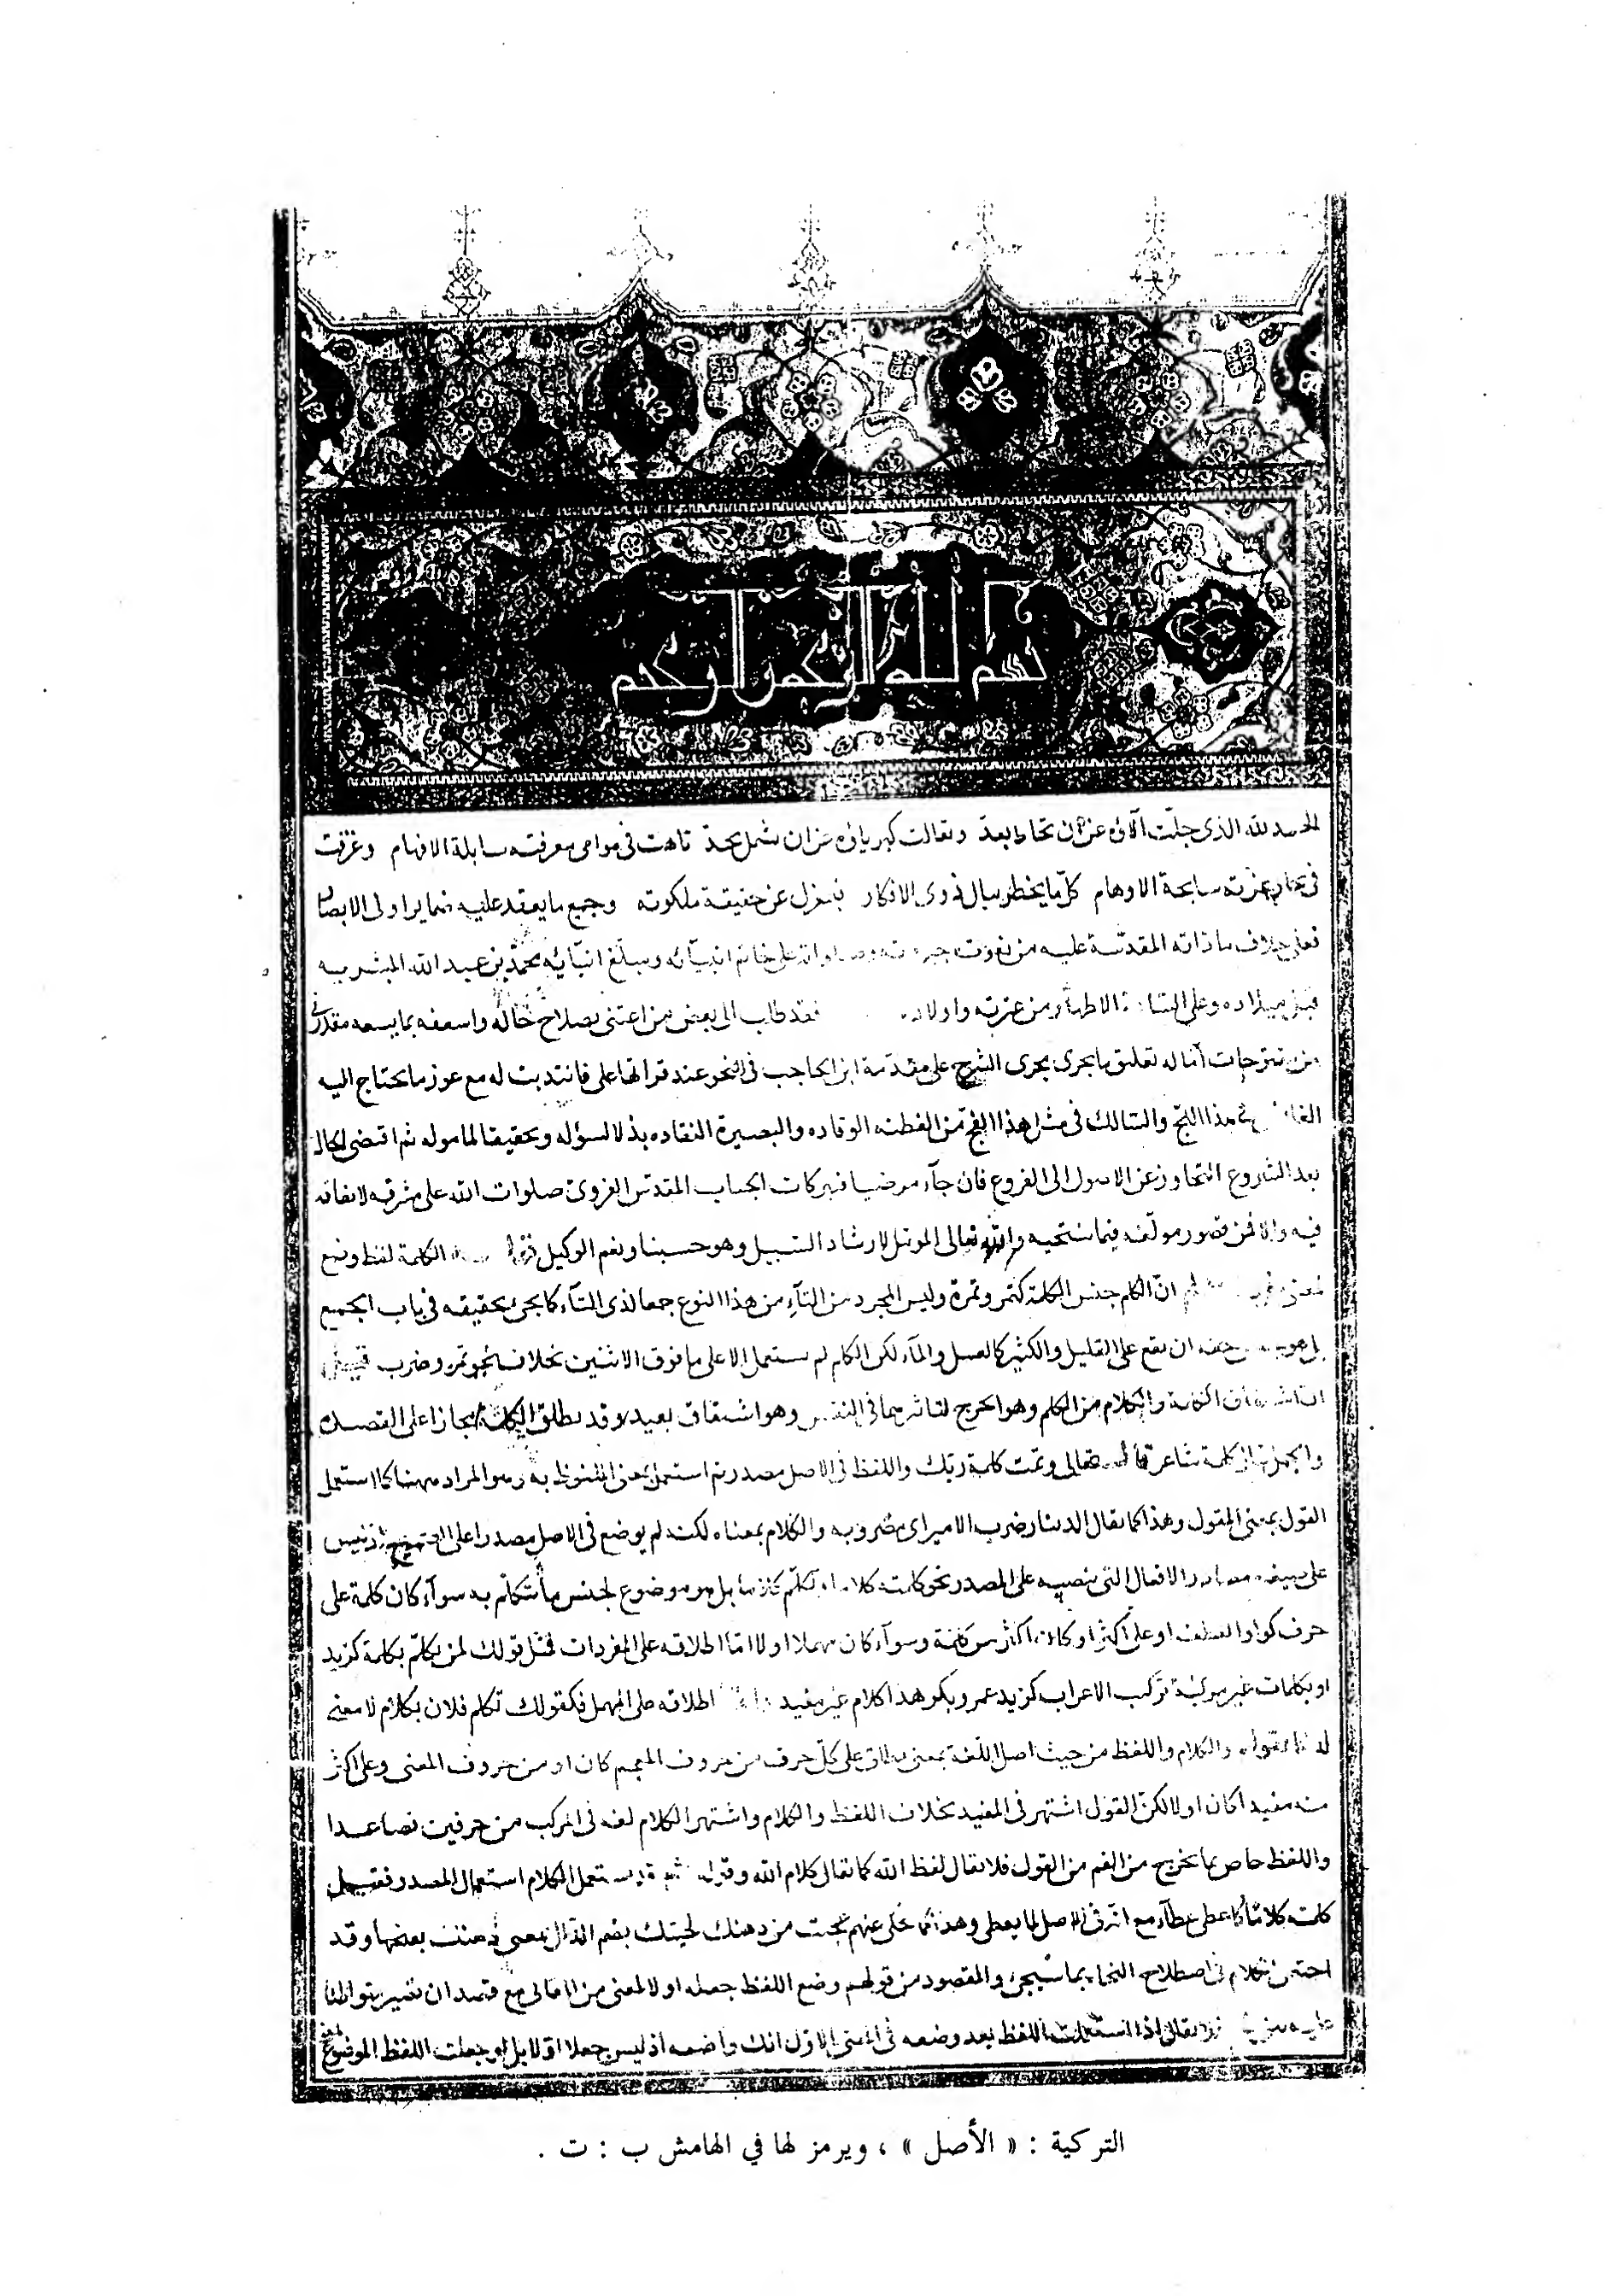 بسم الله الرحمن الرحيم
الحمد لله الذى جلّت آلاؤه عن ان تحاط بعد وتعالت كبرياؤه عن ان تشمل بحد تاهت فى موامى معرفته سابلة الافهام وغرقت
فى بحار عزته سابحة الاوهام كل ما يخطر ببال ذوى الافكار فبمعزل عن حقيقة ملكوته وجميع ما يعقد عليه ضماير اولى الابصار
فعلى خلاف ما ذاته المقدسة عليه من نعوت جبروته وصلواته على خاتم انبيائه ومبلغ انبائه محمد بن عبد الله المبشر به
قبل ميلاده وعلى السادة الاطهار من عترته واولاده فقد طلب الى بعض من اعتنى بصلاح حاله واسعفه بما يسعه مقدرتى
من مقترحات آماله تعليق ما يجرى مجرى الشرح على مقدمة ابن الحاجب فى النحو عند قراتها على فانتدبت له مع عوز ما يحتاج اليه
هذا اللج والسالك فى مثل هذا الفج من الفطنة الوقاده والبصيرة النقاده بذلا لسؤله وتحقيقا لماموله ثم اقتضى الحال
بعد الشروع التجاوز عن الاصول الى الفروع فان جاء مرضيا فببركات الجناب المقدس الغروى صلوات الله على مشرفه لاتفاقه
فيه والا فمن قصور مولفه فيما ينتحيه والله تعالى المومل لارشاد السبيل وهو حسبنا ونعم الوكيل الكلمة لفظ وضع
لمعنى ان الكلم جنس الكلمة كتمر وتمرة وليس المجرد من التاء من هذا النوع جمعا لذى التاء كما يجئ تحقيقه فى باب الجمع
بل هو جنس حقه ان يقع على القليل والكثير كالعسل والماء لكن الكلم لم يستعمل الا على ما فوق الاثنين بخلاف نحو تمر وضرب فقيل
ان اشتقاق الكلمة والكلام من الكلم وهو الجرح لتاثيرهما فى النفس وهو اشتقاق بعيد وقد يطلق الكلمة مجازا على القصيدة
والجمل يقال كلمة شاعر قال الله تعالى وتمت كلمة ربك واللفظ فى الاصل مصدر ثم استعمل بمعنى الملفوظ به وهو المراد ههنا كما استعمل
القول بمعنى المقول وهذا كما يقال الدينار ضرب الامير اى مضروبه والكلام بمعناه لكنه لم يوضع فى الاصل مصدرا على الصحيح اذ ليس
على صيغة مصادر الافعال التى ينصبه على المصدر نحو كلمته كلاما وتكلم كلاما بل هو موضوع لجنس ما يتكلم به سواء كان كلمة على
حرف كواو العطف او على اكثر او كان اكثر من كلمة وسواء كان مهملا او لا اما اطلاقه على المفردات فمثل قولك لمن تكلم بكلمة كزيد
او بكلمات غير مركبة تركيب الاعراب كزيد عمرو بكر هذا كلام غير مفيد واما اطلاقه على المهمل فكقولك تكلم فلان بكلام لا معنى
له فالقول والكلام واللفظ من حيث اصل اللغة بمعنى يطلق على كل حرف من حروف المعجم كان او من حروف المعنى وعلى اكثر
منه مفيدا كان او لا لكن القول اشتهر فى المفيد بخلاف اللفظ والكلام واشتهر الكلام لغة فى المركب من حرفين فصاعدا
واللفظ خاص بما يخرج من الفم من القول فلا يقال لفظ الله كما يقال كلام الله وقوله ثم قد يستعمل الكلام استعمال المصدر فقيل
كلمته كلاما كاعطى عطاء مع انه فى الاصل لما يعطى وهذا كما حكى عنهم عجبت من دهنك لحيتك بضم الدال بمعنى دهنك بفتحها وقد
اختص الكلام فى اصطلاح النحاة بما سيجئ والمقصود من قولهم وضع اللفظ جعله اولا لمعنى من المعانى مع قصد ان تصير متواطئا
عليه بين فلا يقال اذا استعملت اللفظ بعد وضعه فى المعنى الاول انك واضعه اذ ليس جعلا اولا بل لو جعلت اللفظ الموضوع لمعنى
التركية : « الأصل » ، ويرمز لها في الهامش ب : ت .